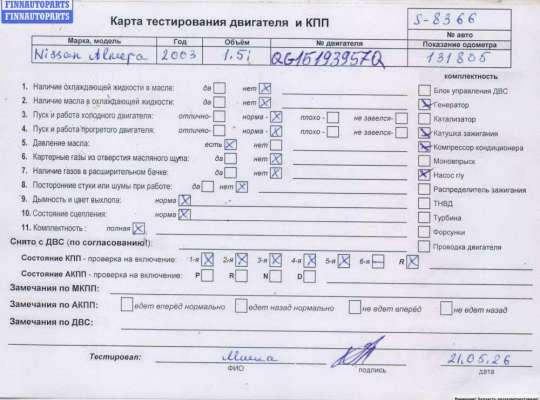 FINNAUTOPARTS
FINNAUTOPARTS
Карта тестирования двигателя и КПП
S-8366
№ авто
Марка, модель Год Объём № двигателя Показание одометра
Nissan Almera 2003 1.5i QG15193957Q 131805
комплектность
1. Наличие охлаждающей жидкости в масле: да нет
2. Наличие масла в охлаждающей жидкости: да нет
3. Пуск и работа холодного двигателя: отлично- норма - плохо - не завелся-
4. Пуск и работа прогретого двигателя: отлично- норма - плохо - не завелся-
5. Давление масла: есть нет
6. Картерные газы из отверстия масляного щупа: да нет
7. Наличие газов в расширительном бачке: да нет
8. Посторонние стуки или шумы при работе: да нет
9. Дымность и цвет выхлопа: норма
10. Состояние сцепления: норма
11. Комплектность : полная
Блок управления ДВС
Генератор
Катализатор
Катушка зажигания
Компрессор кондиционера
Моновпрыск
Насос г/у
Распределитель зажигания
ТНВД
Турбина
Форсунки
Проводка двигателя
Снято с ДВС (по согласованию):
Состояние КПП - проверка на включение: 1-я 2-я 3-я 4-я 5-я 6-я R
Состояние АКПП - проверка на включение: P R N D
Замечания по МКПП:
Замечания по АКПП: едет вперед нормально едет назад нормально не едет вперёд не едет назад
Замечания по ДВС:
Тестировал: 21.05.26
ФИО подпись дата